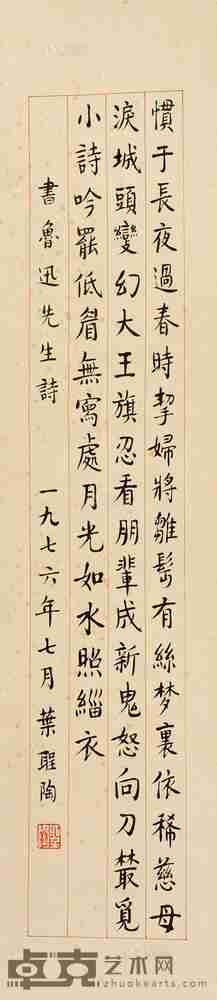 慣于長夜過春時挈婦將雛鬢有絲梦裏依稀慈母
淚城頭變幻大王旗忍看朋輩成新鬼怒向刀叢覓
小詩吟罷低眉無寫處月光如水照緇衣
書魯迅先生詩 一九七六年七月 葉聖陶
卓克艺术网
zhuokearts.com